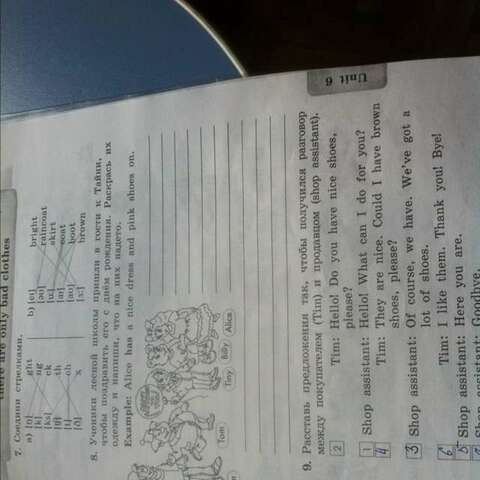 there are only bad clothes
7. Соедини стрелками.
a) ght
[k] ng
[ks] ck
th
[t] ch
x
b) bright
raincoat
skirt
coat
boot
brown
8. Ученики лесной школы пришли в гости к Тайни,
чтобы поздравить его с днём рождения. Раскрась их
одежду и напиши, что на них надето.
Example: Alice has a nice dress and pink shoes on.
Tom
Tiny
Billy
Alice
9. Расставь предложения так, чтобы получился разговор
между покупателем (Tim) и продавцом (shop assistant).
2 Tim: Hello! Do you have nice shoes,
please?
1 Shop assistant: Hello! What can I do for you?
4 Tim: They are nice. Could I have brown
shoes, please?
3 Shop assistant: Of course, we have. We've got a
lot of shoes.
6 Tim: I like them. Thank you! Bye!
5 Shop assistant: Here you are.
Shop assistant: Goodbye.
Unit 6